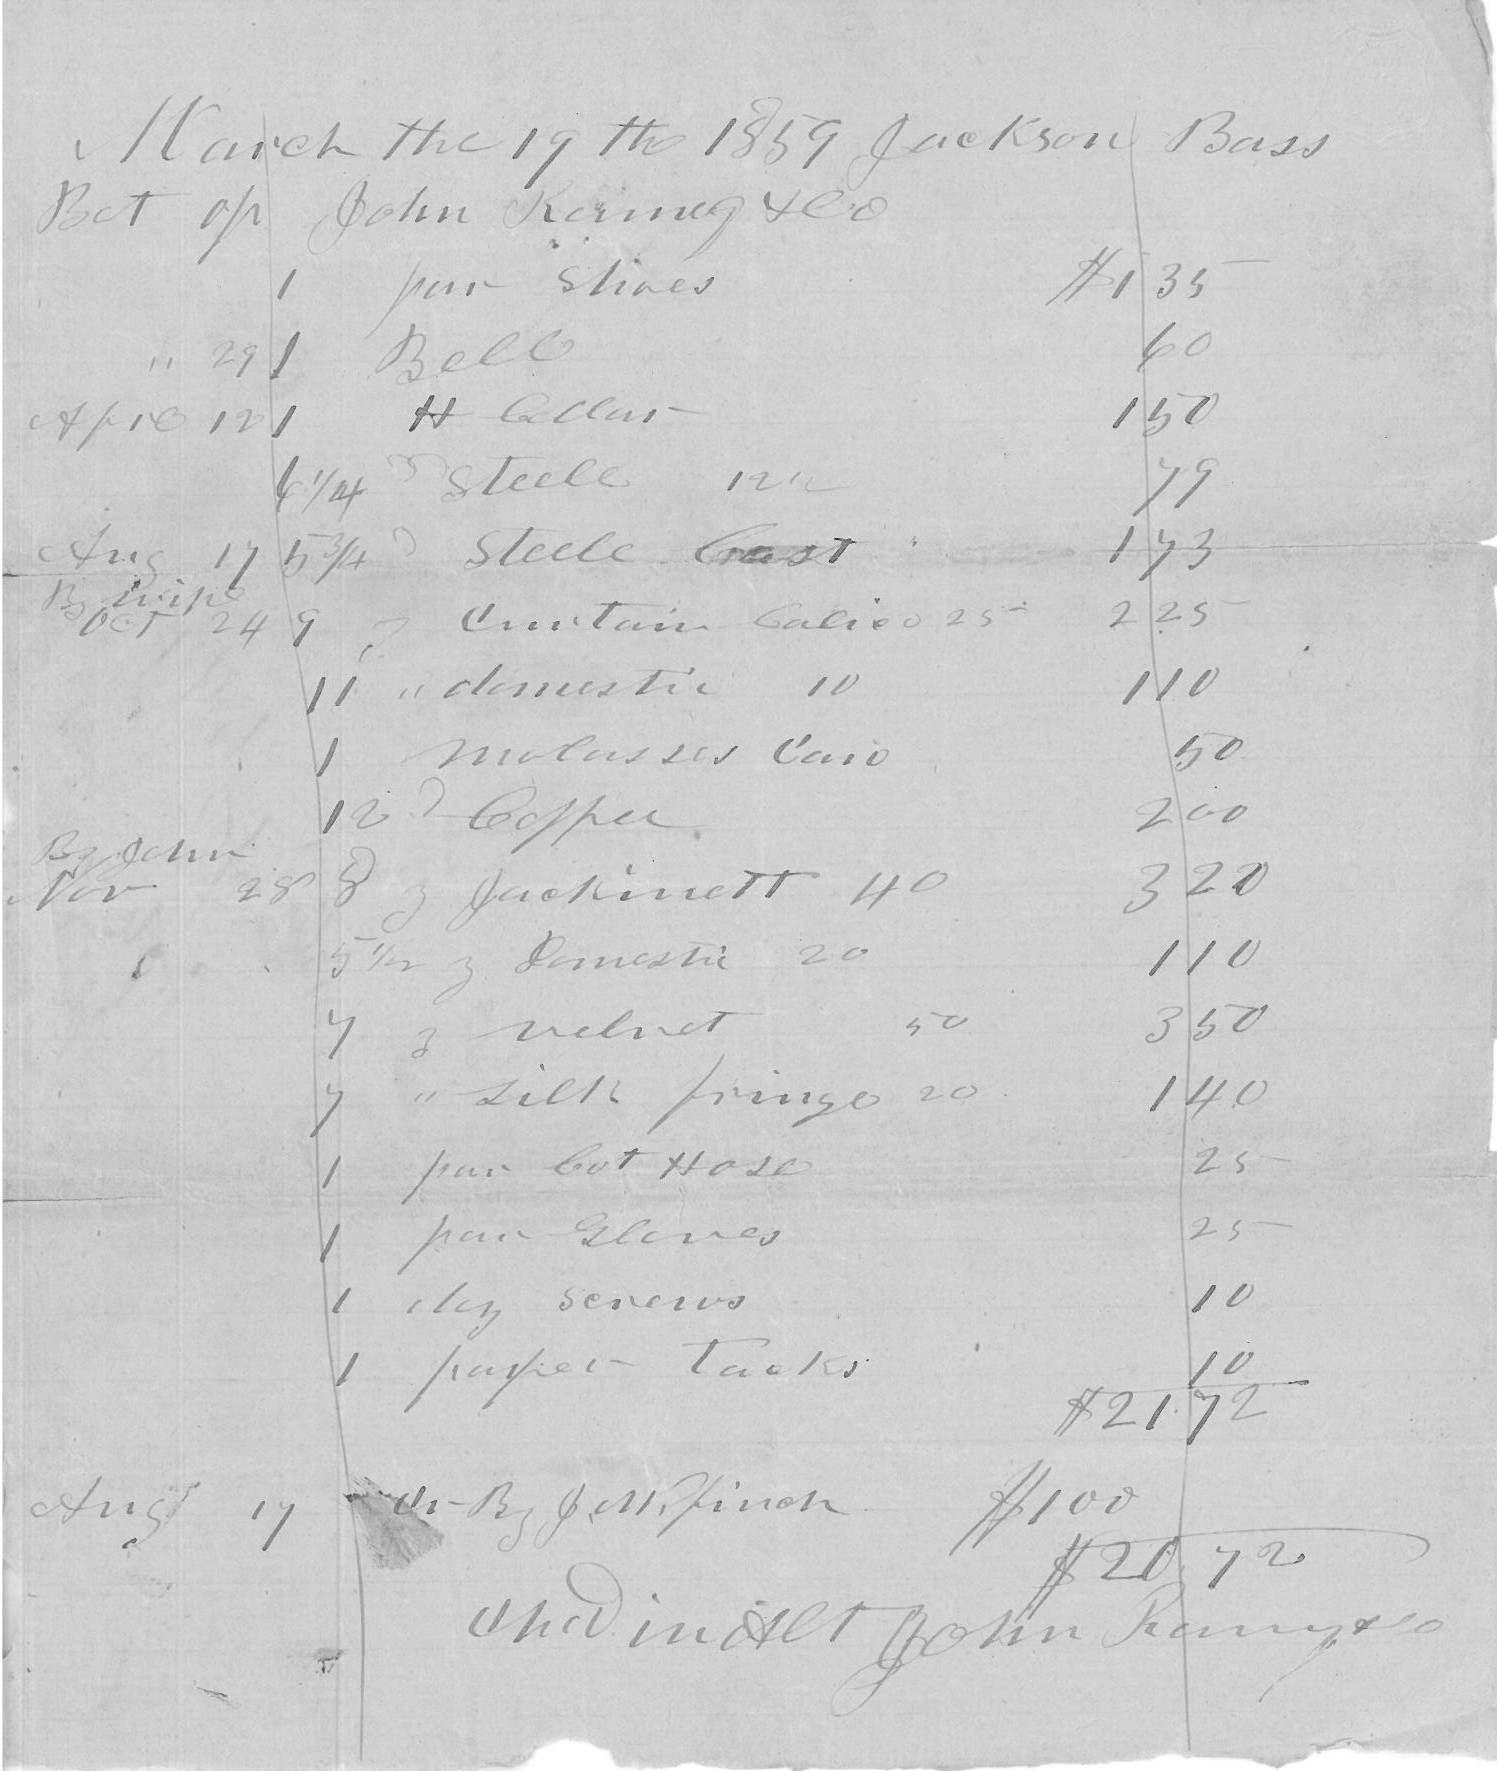 March the 19 th 1859 Jackson Bass
Bot of John Ramey & Co
1 pair Shoes $1 35
" 29 1 Bell 60
Apriel 12 1 H Collar 1 50
6 1/4 Steele 12 1/2 79
Aug 17 5 3/4 Steele Cast 1 73
By wife
Oct 24 9 y Curtain Calico 25 2 25
11 " domestic 10 1 10
1 molasses Can 50
12 Coffee 2 00
By John
Nov 28 8 y Jackinett 40 3 20
5 1/2 y Domestic 20 1 10
7 y velvet 50 3 50
7 " Silk fringe 20 1 40
1 pair Cot Hose 25
1 pair Gloves 25
1 doz screws 10
1 paper Tacks 10
$21 72
Augt 17 Cr By J. M. Finch $1 00
$20 72
Chd in Act John Ramey & Co